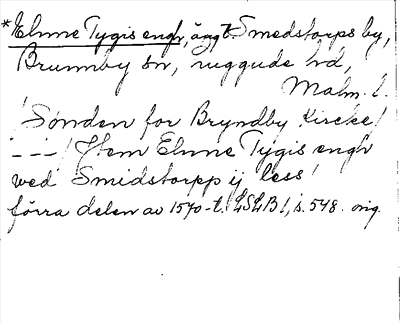 *Elnne Tygis engh, ägg t. Smedstorps by,
Brunnby sn, Luggude hd,
Malm. l.
/Sønden for Bryndby Kircke/
/– – –/ Item Elnne Tygis engh
wed Smidstorpp ij less/
förra delen av 1570-t. LSLB I, s. 548. orig.